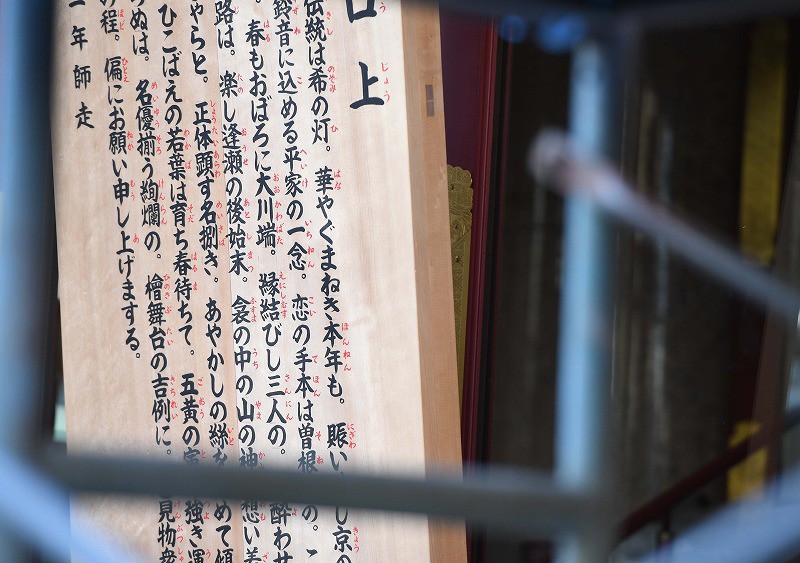 口上
伝統は希の灯。華やぐまねき本年も。賑い し京の
鈴音に込める平家の一念。恋の手本は曽根 の。こ
。春もおぼろに大川端。縁結びし三人の。酔わせ
路は。楽し逢瀬の後始末。衾の中の山の神 想い
やらと。正体顕す名捌き。あやかしの絲を めて傾
ひこばえの若葉は育ち春待ちて。五黄の寅 強き運
らぬは。名優揃う絢爛の。檜舞台の吉例に。 見物衆
の程。偏にお願い申し上げまする。
一年師走